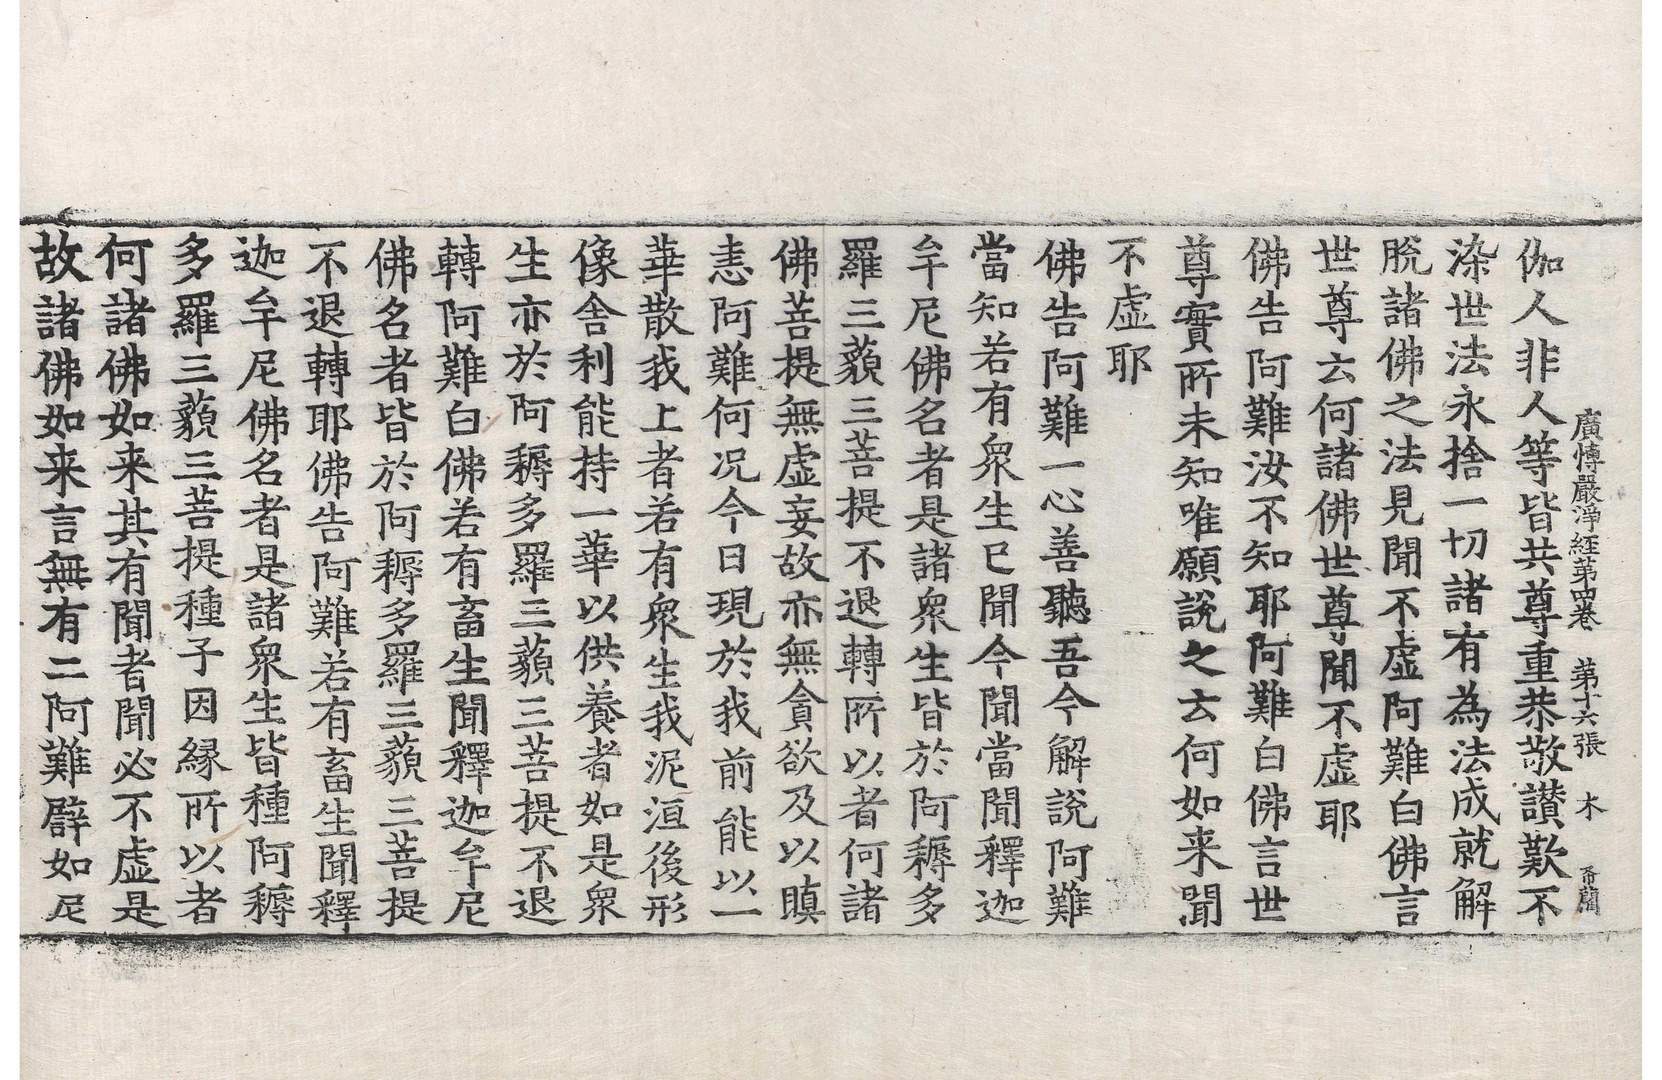 廣博嚴淨經第四卷　第十六張　木
伽人非人等皆共尊重恭敬讃歎不
染世法永捨一切諸有為法成就解
脫諸佛之法見聞不虛阿難白佛言
世尊云何諸佛世尊聞不虛耶
佛告阿難汝不知耶阿難白佛言世
尊實所未知唯願說之云何如来聞
不虛耶
佛告阿難一心善聽吾今解說阿難
當知若有衆生已聞今聞當聞釋迦
牟尼佛名者是諸衆生皆於阿耨多
羅三藐三菩提不退轉所以者何諸
佛菩提無虛妄故亦無貪欲及以瞋
恚阿難何况今日現於我前能以一
華散我上者若有衆生我泥洹後形
像舎利能持一華以供養者如是衆
生亦於阿耨多羅三藐三菩提不退
轉阿難白佛若有畜生聞釋迦牟尼
佛名者皆於阿耨多羅三藐三菩提
不退轉耶佛告阿難若有畜生聞釋
迦牟尼佛名者是諸衆生皆種阿耨
多羅三藐三菩提種子因縁所以者
何諸佛如来其有聞者聞必不虛是
故諸佛如来言無有二阿難辟如尼